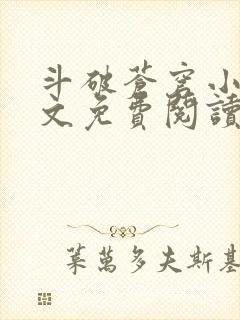 斗破蒼穹小
文免費閱讀
葉萬多夫斯基